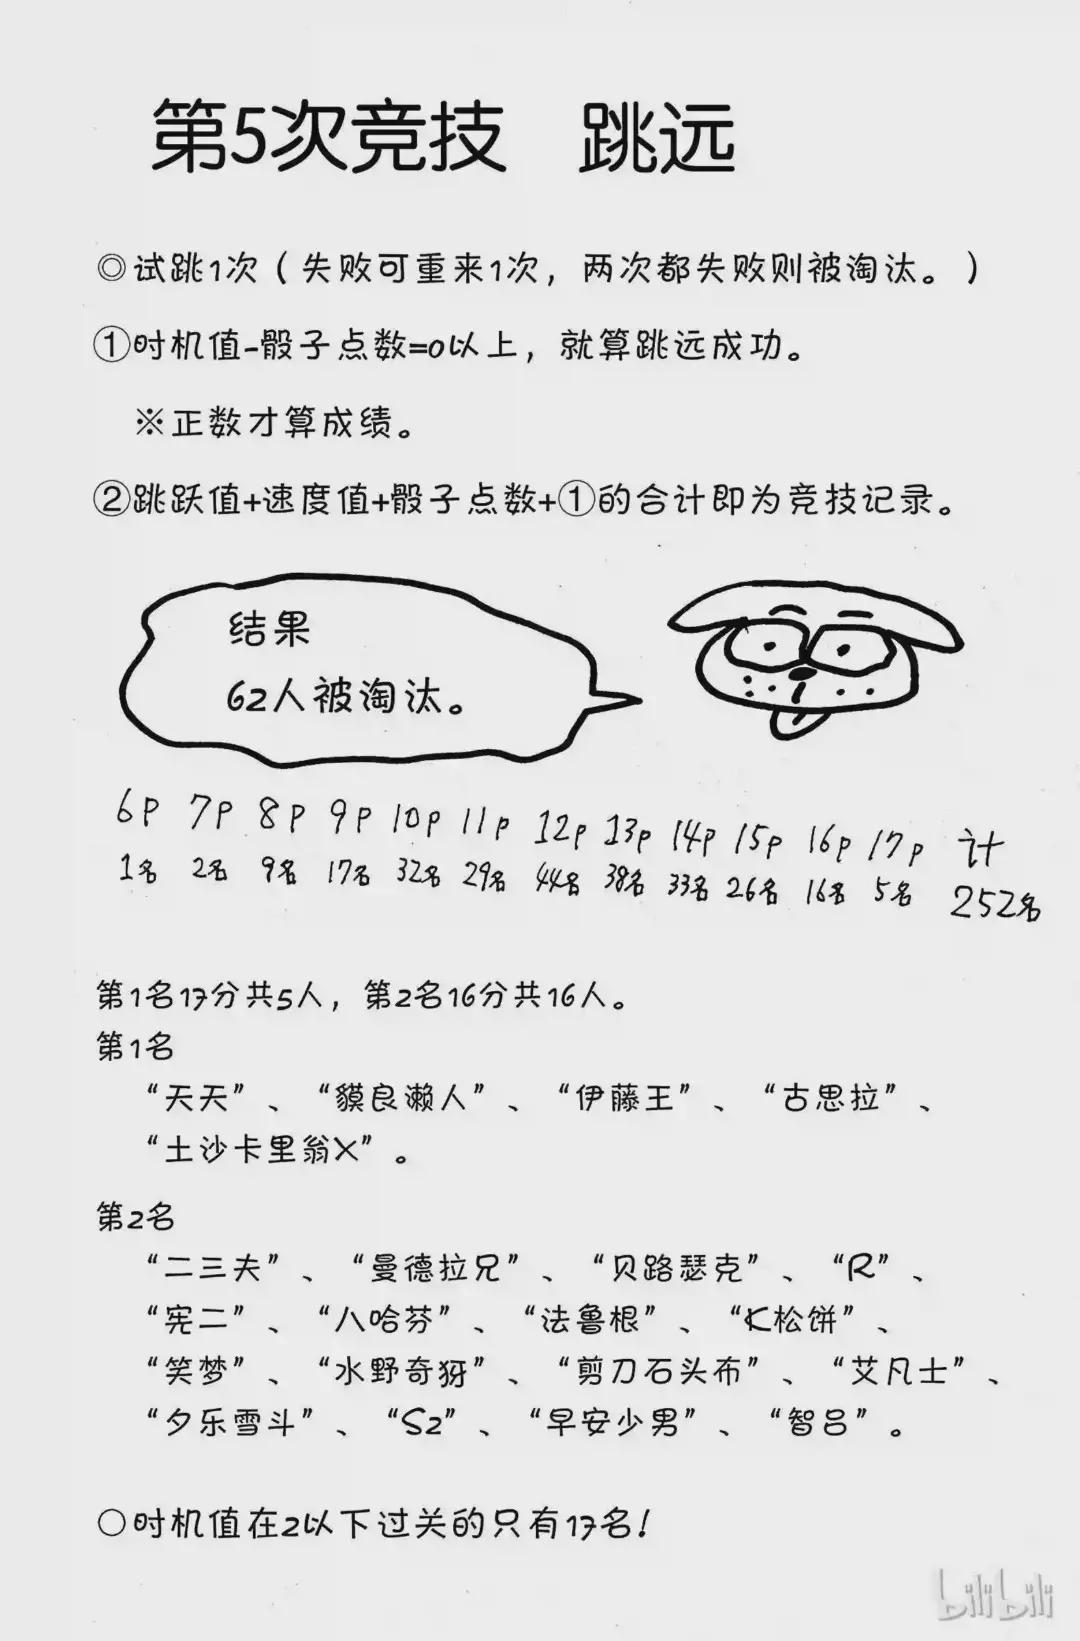 第5次竞技 跳远
◎试跳1次（失败可重来1次，两次都失败则被淘汰。）
①时机值-骰子点数=0以上，就算跳远成功。
※正数才算成绩。
②跳跃值+速度值+骰子点数+①的合计即为竞技记录。
结果
62人被淘汰。
6P 7P 8P 9P 10P 11P 12P 13P 14P 15P 16P 17P 计
1名 2名 9名 17名 32名 29名 44名 38名 33名 26名 16名 5名 252名
第1名17分共5人，第2名16分共16人。
第1名
“天天”、“貘良濑人”、“伊藤王”、“古思拉”、
“土沙卡里翁X”。
第2名
“二三夫”、“曼德拉兄”、“贝路瑟克”、“R”、
“宪二”、“八哈芬”、“法鲁根”、“K松饼”、
“笑梦”、“水野奇犽”、“剪刀石头布”、“艾凡士”、
“夕乐雪斗”、“S2”、“早安少男”、“智吕”。
○时机值在2以下过关的只有17名！
bilibili